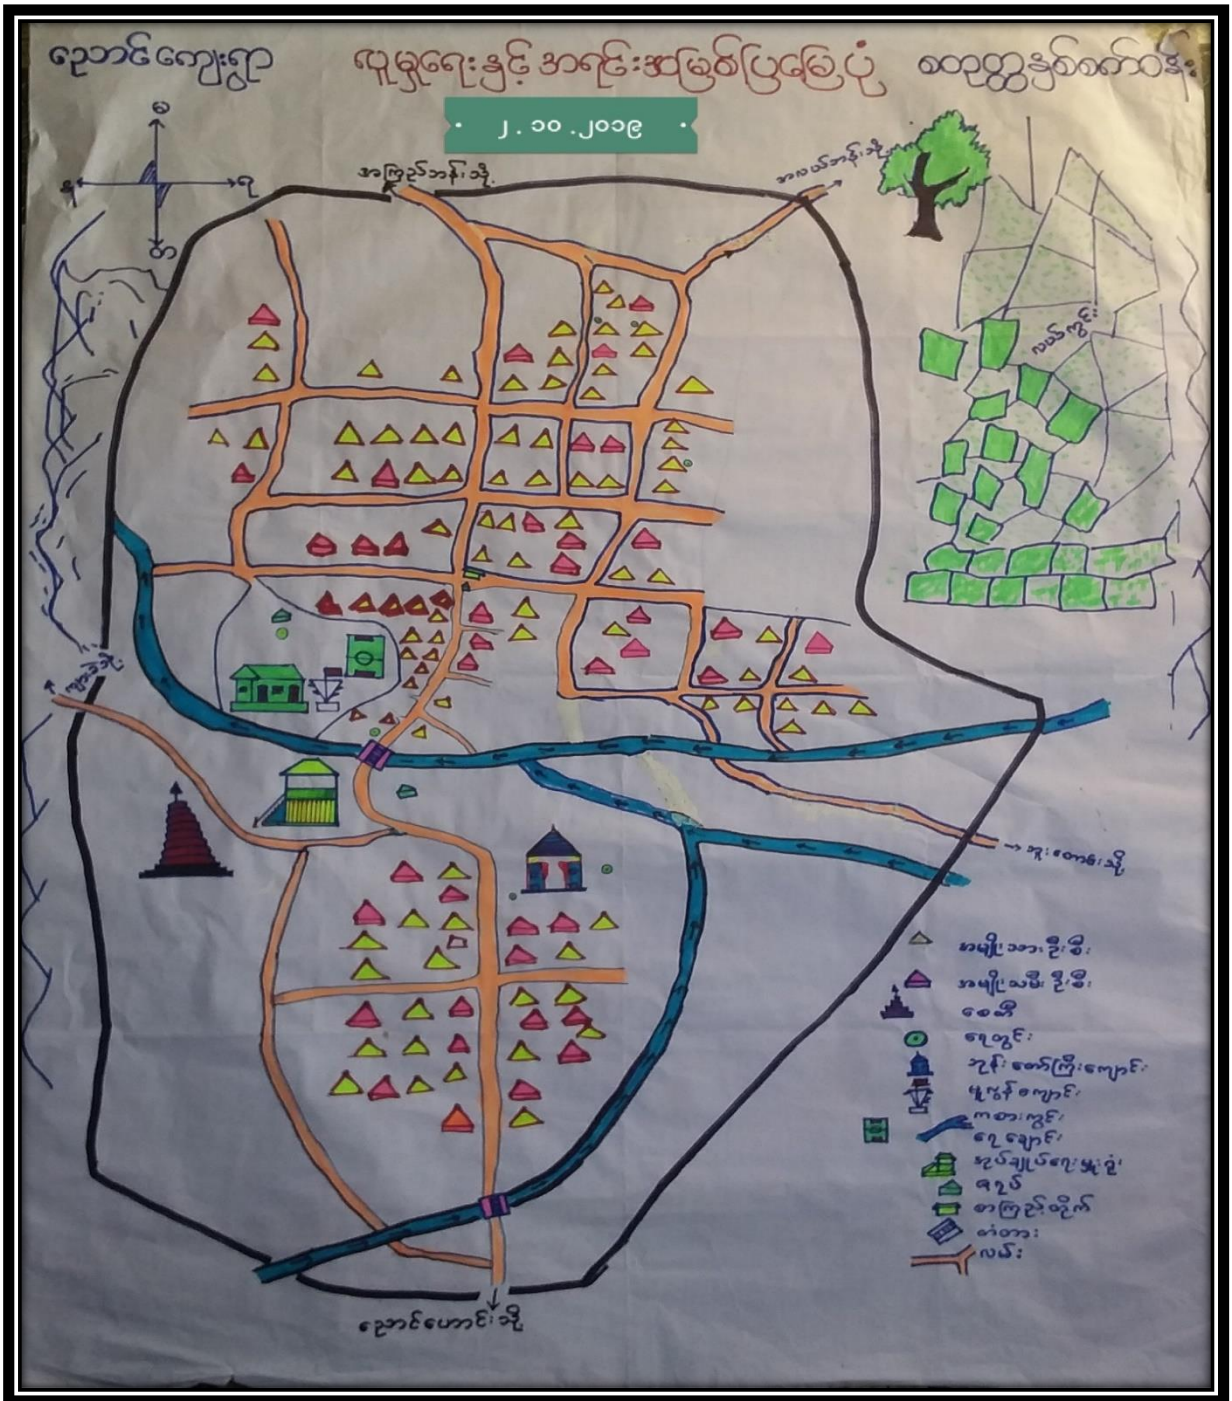 ညောင်ကျေးရွာ လူမှုရေးနှင့် အရင်းအမြစ်ပြမြေပုံ စတုတ္ထနှစ်စက်ဝန်း
၂.၁၀.၂၀၁၉
မ
န
ရ
တ
အကြည်ဘန်းသို့
အလယ်ဘန်းသို့
လယ်ကွင်း
ဘူးတောင်းသို့
အမျိုးသားဦးစီး
အမျိုးသမီးဦးစီး
စေတီ
ရေတွင်း
ဘုန်းတော်ကြီးကျောင်း
မူလွန်ကျောင်း
ကစားကွင်း
ရေချောင်း
အုပ်ချုပ်ရေးမှူးရုံး
ဇရပ်
စာကြည့်တိုက်
တံတား
လမ်း
ညောင်ဟောင်းသို့